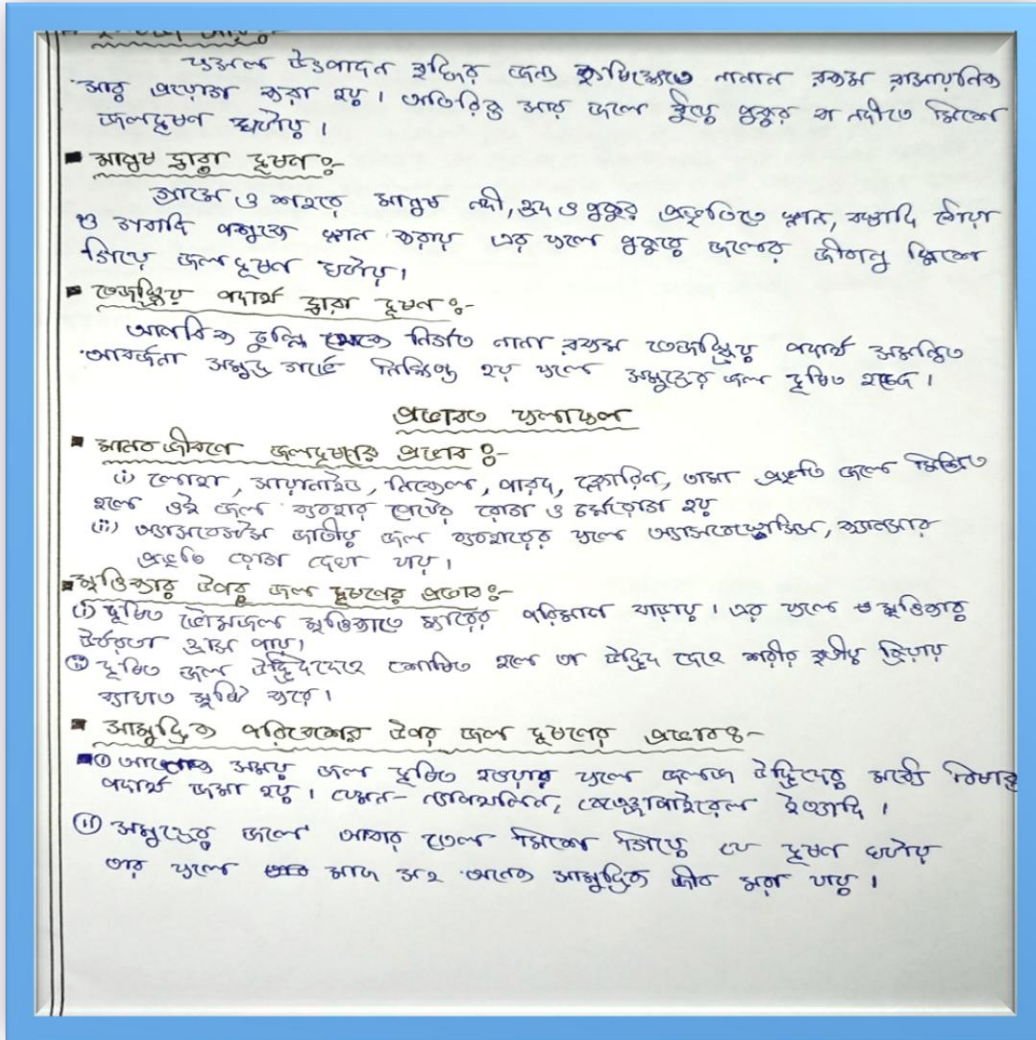 ফসল উৎপাদন বৃদ্ধির জন্য কৃষিক্ষেত্রে নানান রকম রাসায়নিক
সার প্রয়োগ করা হয়। অতিরিক্ত সার জলে ধুয়ে পুকুর বা নদীতে মিশে
জলদূষণ ঘটায়।
মানুষ দ্বারা দূষণ ঃ-
গ্রামে ও শহরে মানুষ নদী, হ্রদ ও পুকুর প্রভৃতিতে স্নান, বস্ত্রাদি ধোঁয়া
ও গবাদি পশুকে স্নান করায় এর ফলে পুকুরে জলের জীবানু মিশে
গিয়ে জলদূষণ ঘটায়।
তেজস্ক্রিয় পদার্থ দ্বারা দূষণ ঃ-
আনবিক চুল্লি থেকে নির্গত নানা রকম তেজস্ক্রিয় পদার্থ সমন্বিত
আবর্জনা সমুদ্র গর্ভে নিক্ষিপ্ত হয় ফলে সমুদ্রের জল দূষিত হচ্ছে।
ফলাফল
মানব জীবনে জলদূষণের প্রভাব ঃ-
(i) লোহা, সায়ানাইড, নিকেল, পারদ, ক্লোরিন, তামা প্রভৃতি জলে মিশ্রিত
হলে ওই জল ব্যবহার পেটের রোগ ও চর্মরোগ হয়
(ii) অ্যাসবেসটস জাতীয় জল ব্যবহারের ফলে অ্যাসবেস্টোসিস, ক্যানসার
প্রভৃতি রোগ দেখা যায়।
মৃত্তিকার উপর জল দূষণের প্রভাব ঃ-
(i) দূষিত ভৌমজল মৃত্তিকাতে ক্ষারের পরিমান বাড়ায়। এর ফলে মৃত্তিকার
উর্বরতা হ্রাস পায়।
(ii) দূষিত জল উদ্ভিদদেহে শোষিত হলে তা উদ্ভিদ দেহে শরীর বৃত্তীয় ক্রিয়ায়
ব্যাঘাত সৃষ্টি করে।
সামুদ্রিক পরিবেশের উপর জল দূষণের প্রভাব ঃ-
(i) সময় জল দূষিত হওয়ার ফলে জলজ উদ্ভিদের মধ্যে বিষাক্ত
পদার্থ জমা হয়। যেমন- ন্যাপথলিন, ইত্যাদি।
(ii) সমুদ্রের জলে আবার তেল মিশে গিয়ে যে দূষণ ঘটায়
তার ফলে মাছ সহ অনেক সামুদ্রিক জীব মরা যায়।